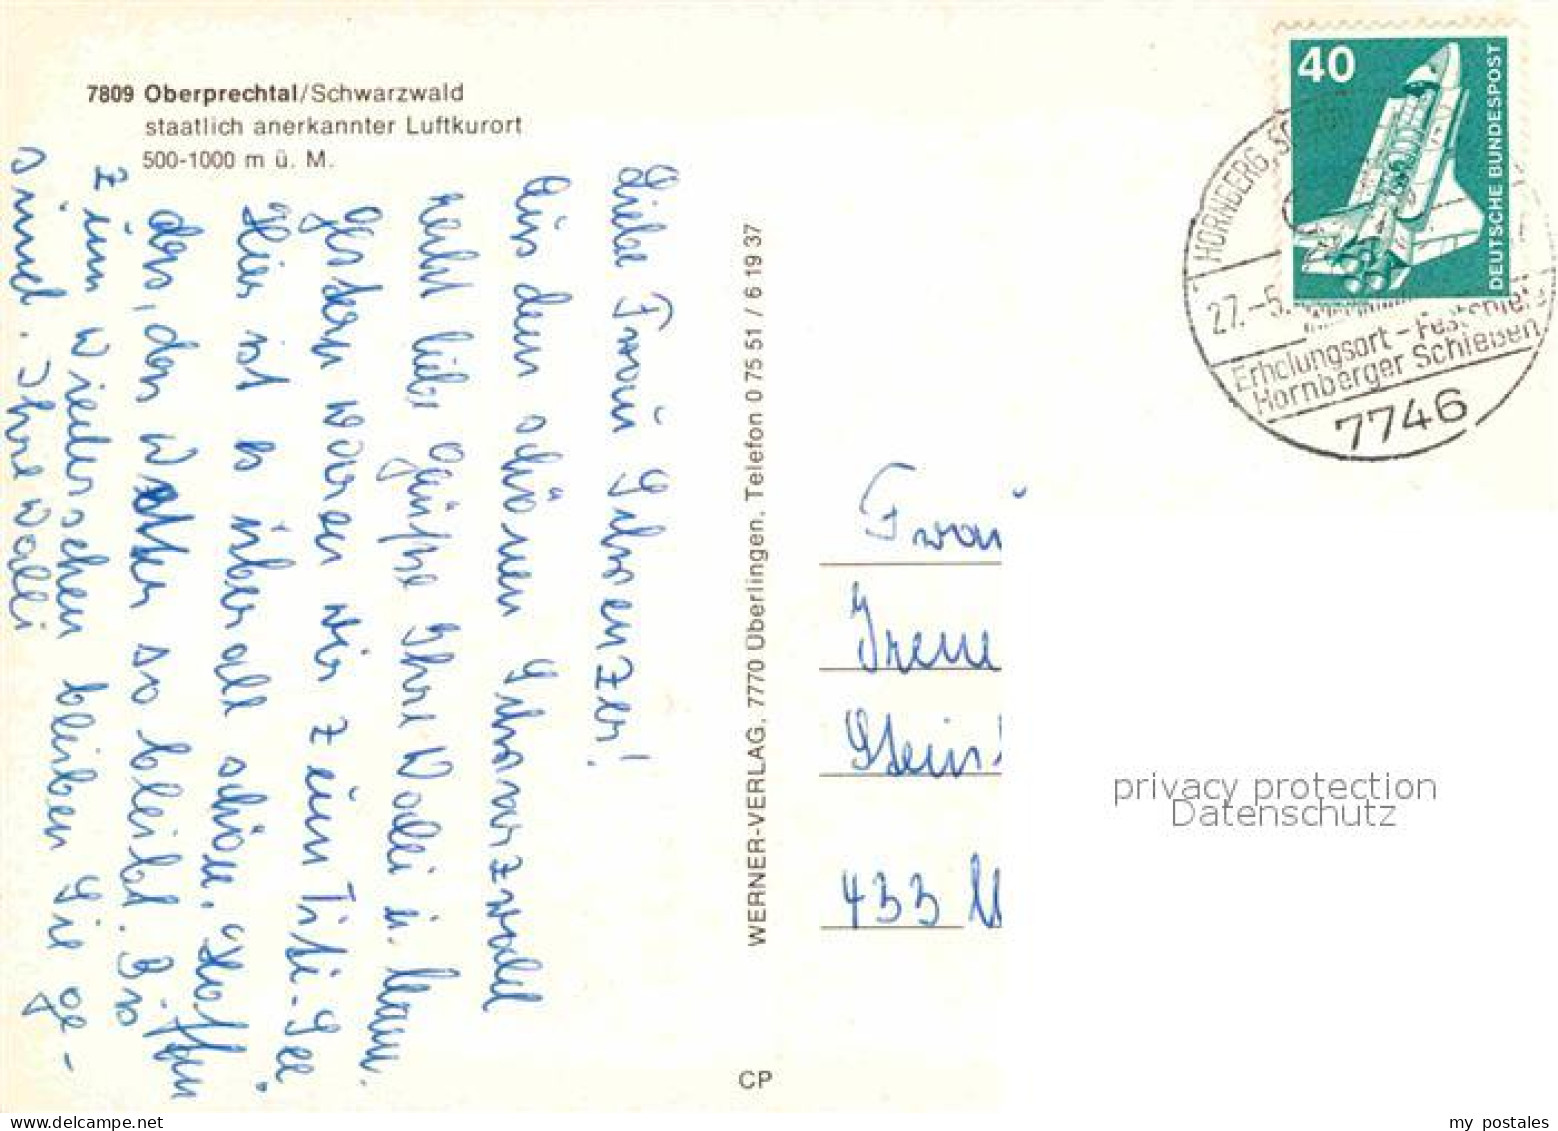 7809 Oberprechtal/Schwarzwald
staatlich anerkannter Luftkurort
500-1000 m ü. M.
Liebe Frau Schwenzer!
Aus dem schönen Schwarzwald
recht liebe Grüße Ihre Walli u. Mann.
Gestern waren wir zum Titi-See
Hier ist es überall schön. Hoffen
das, das Wetter so bleibt. Bis
zum Wiedersehen bleiben Sie ge-
sund. Ihre Walli
WERNER-VERLAG, 7770 Überlingen, Telefon 0 75 51 / 6 19 37
CP
40
DEUTSCHE BUNDESPOST
HORNBERG, SC
27.-5.
Erholungsort - Festspiele
Hornberger Schießen
7746
Frau
Irene
Stein
433 M
privacy protection
Datenschutz
my postales